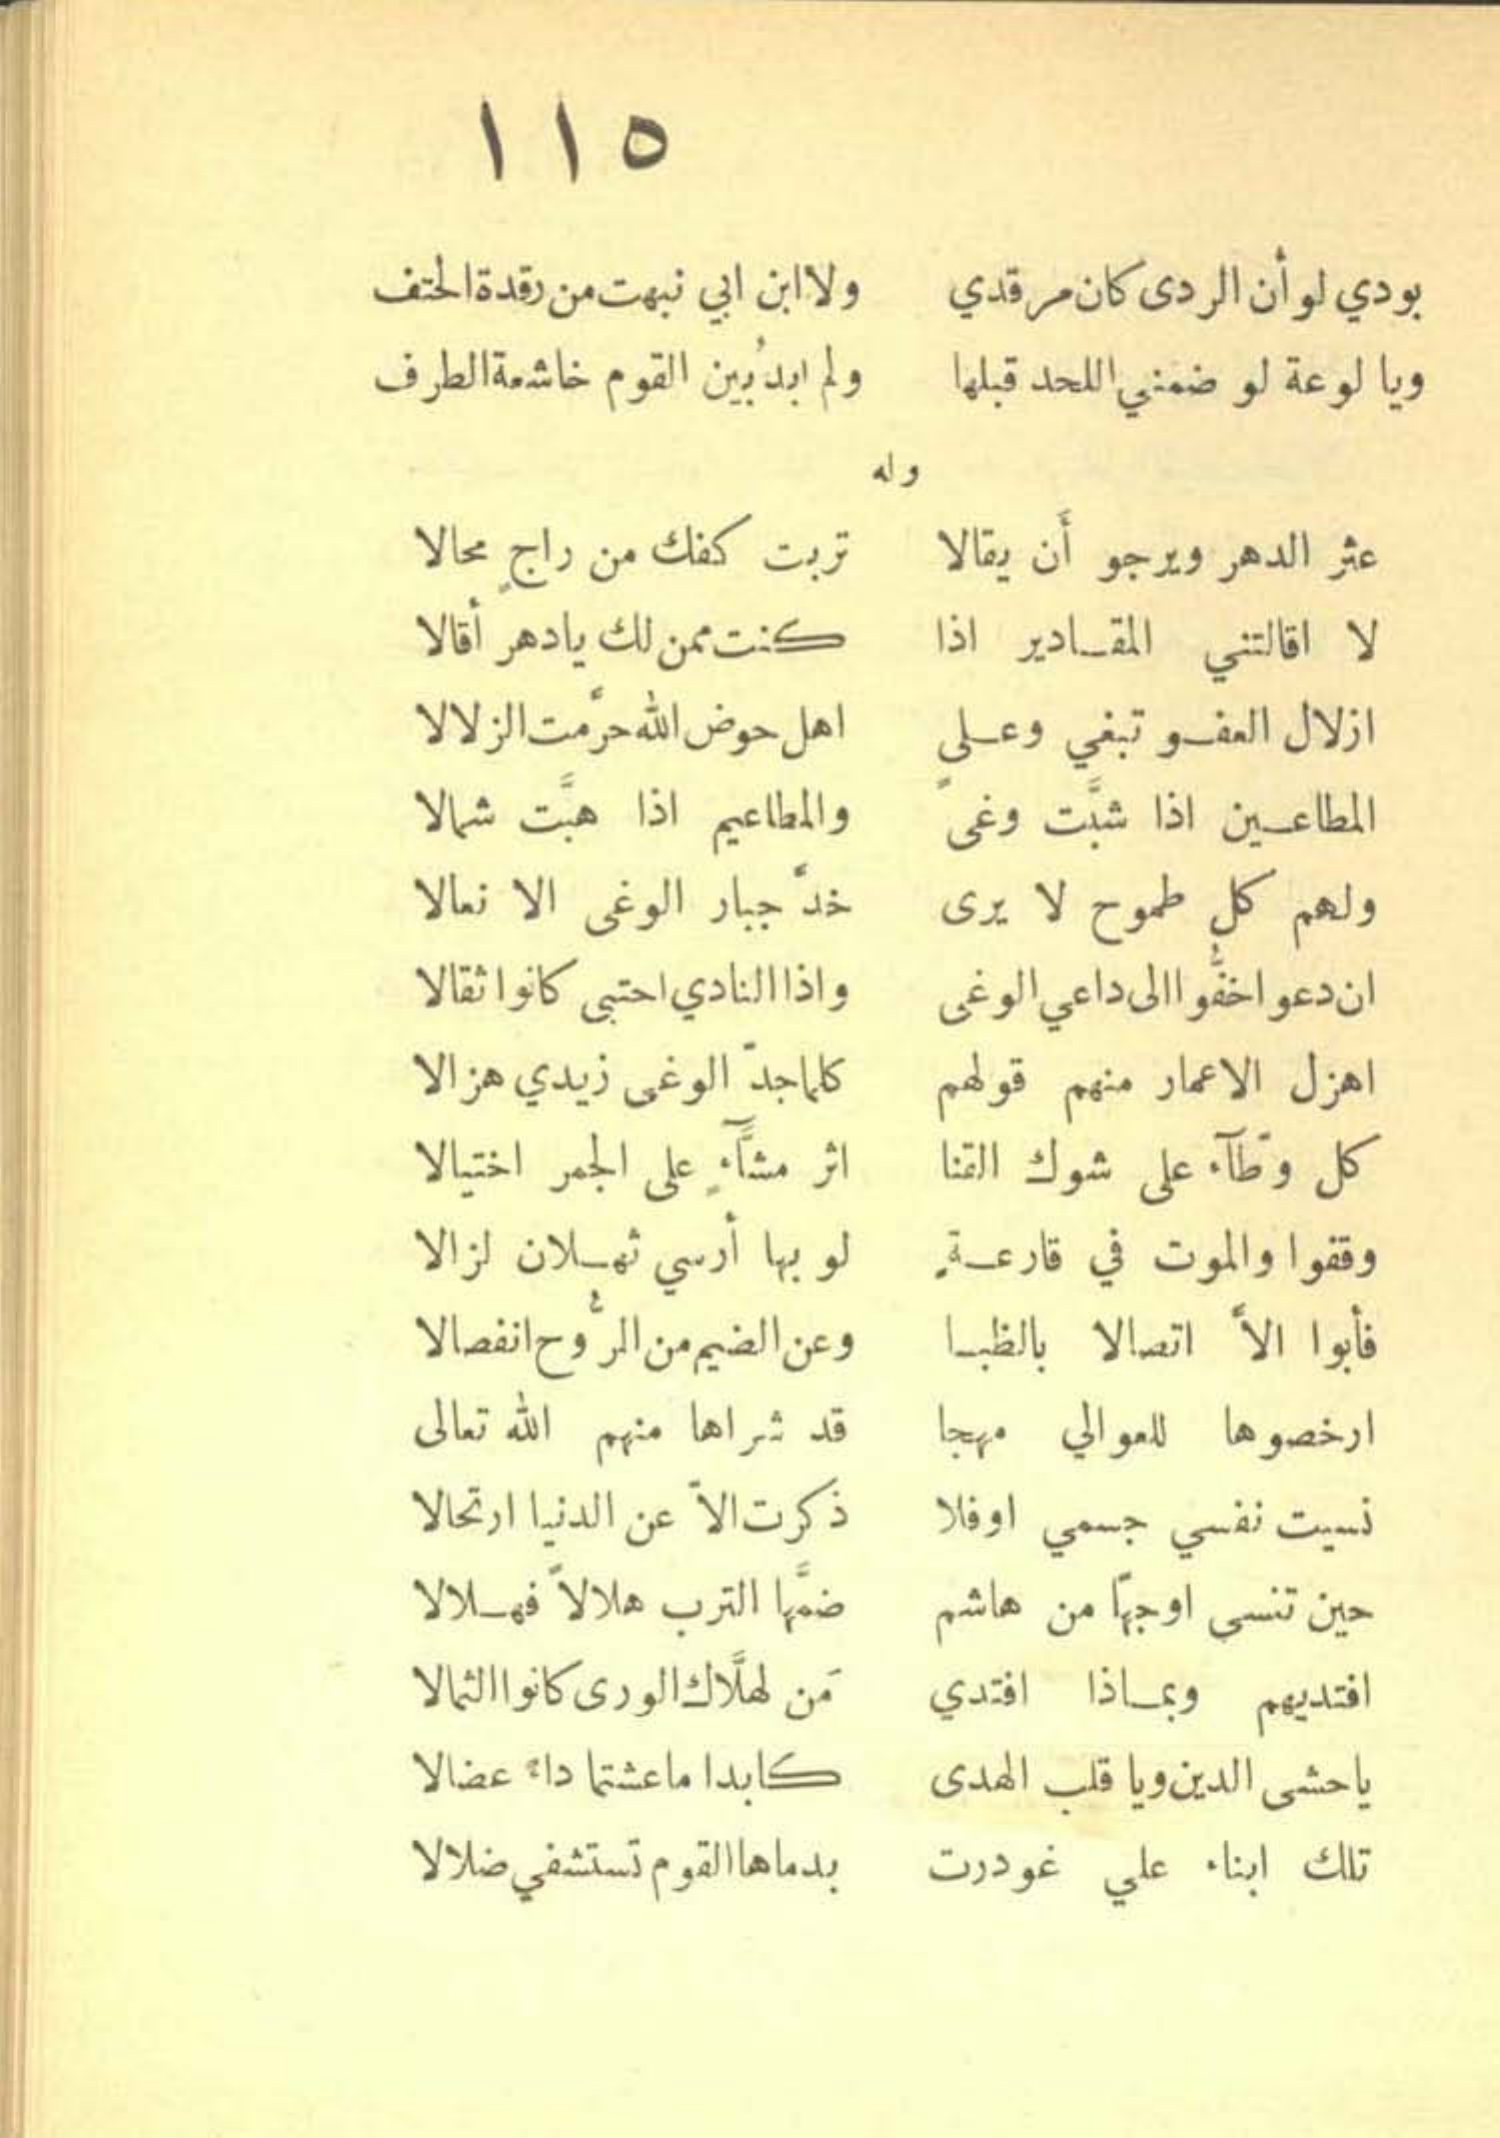 ١١٥
بودي لو أن الردى كان مرقدي ولا ابن ابي نبهت من رقدة الحتف
ويا لوعة لو ضمني اللحد قبلها ولم ابدُ بين القوم خاشعة الطرف
وله
عثر الدهر ويرجو أَن يقالا تربت كفك من راجٍ محالا
لا اقالتني المقادير اذا كنت ممن لك يادهر أقالا
ازلال العفو تبغي وعلى اهل حوض الله حرَّمت الزلالا
المطاعين اذا شبَّت وغىً والمطاعيم اذا هبَّت شمالا
ولهم كل طموح لا يرى خدَّ جبار الوغى الا نعالا
ان دعوا خفُّوا الى داعي الوغى واذا النادي احتبى كانوا ثقالا
اهزل الاعمار منهم قولهم كلما جدّ الوغى زيدي هزالا
كل وطّآء على شوك القنا اثر مشَّآءٍ على الجمر اختيالا
وقفوا والموت في قارعةٍ لو بها أرسي ثهلان لزالا
فأبوا الاَّ اتصالا بالظبا وعن الضيم من الرُّوح انفصالا
ارخصوها للعوالي مهجا قد شراها منهم الله تعالى
نسيت نفسي جسمي اوفلا ذكرت الاّ عن الدنيا ارتحالا
حين تنسى اوجهًا من هاشم ضمَّها الترب هلالاً فهلالا
افتديهم وبماذا افتدي مَن لهلَّاك الورى كانوا الثمالا
ياحشى الدين ويا قلب الهدى كابدا ماعشتما داءً عضالا
تلك ابناء علي غودرت بدماها القوم تستشفي ضلالا